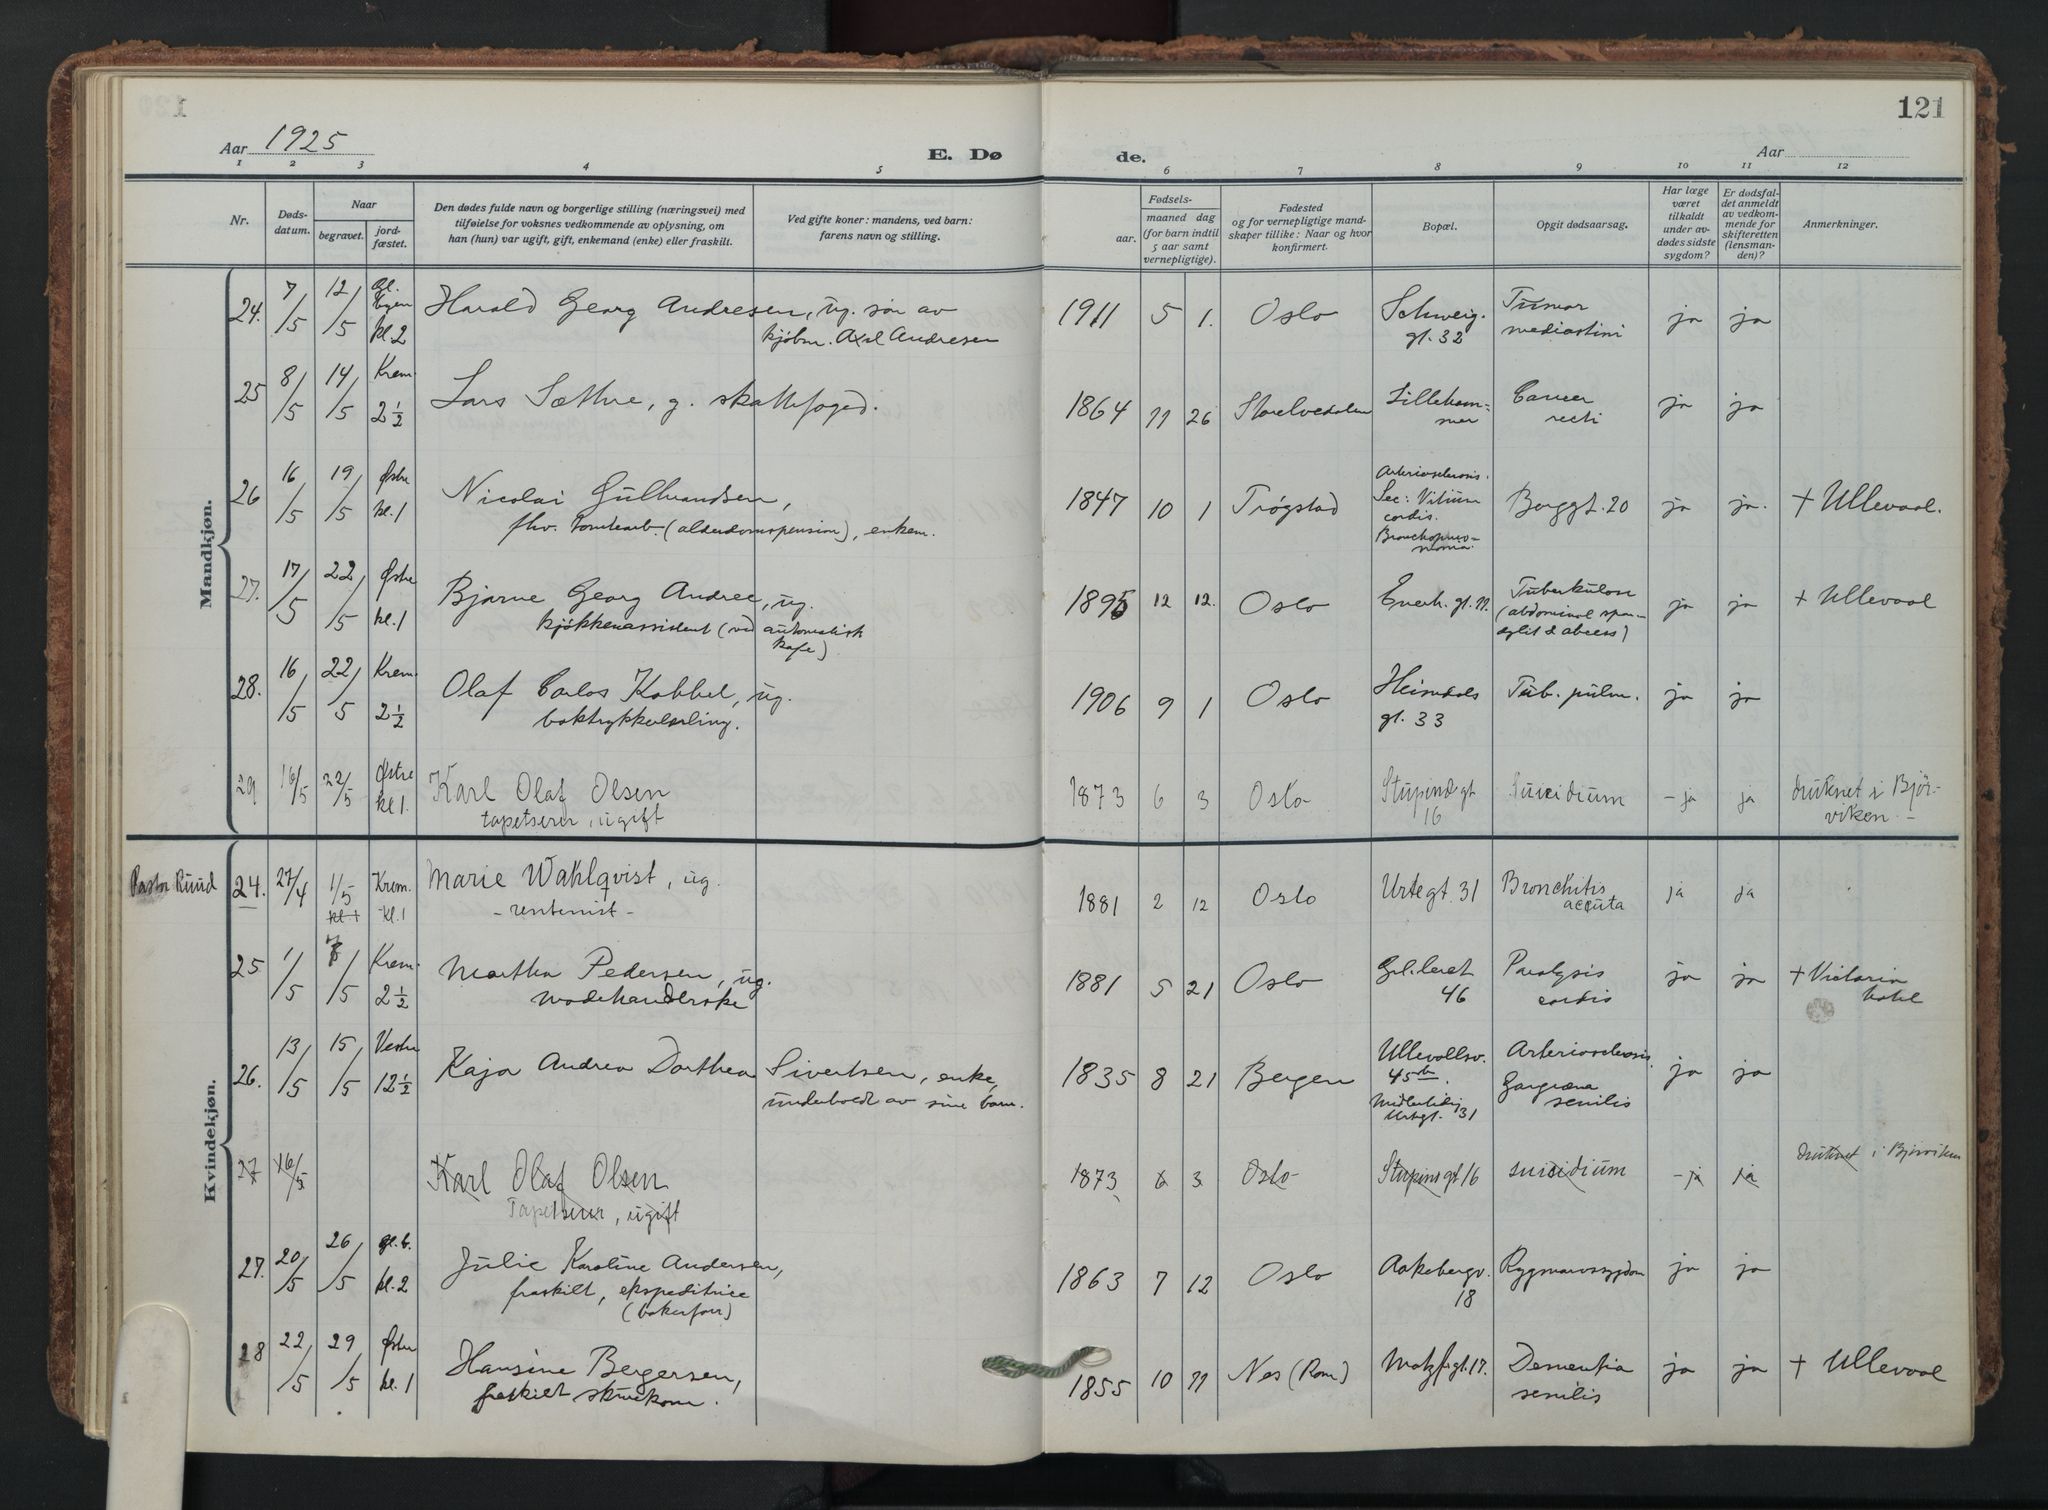 121
Aar 1925
E. Dø
de.
Aar
1 2 3 4 5 6 7 8 9 10 11 12
Nr.
Døds-
datum.
Naar
begravet.
jord-
fæstet.
Den dødes fulde navn og borgerlige stilling (næringsvei) med
tilføielse for voksnes vedkommende av oplysning, om
han (hun) var ugift, gift, enkemand (enke) eller fraskilt.
Ved gifte koner: mandens, ved barn:
farens navn og stilling.
Fødsels-
aar.
maaned dag
(for barn indtil
5 aar samt
vernepligtige).
Fødested
og for vernepligtige mand-
skaper tillike: Naar og hvor
konfirmert.
Bopæl.
Opgit dødsaarsag.
Har læge
været
tilkaldt
under av-
dødes sidste
sygdom?
Er dødsfal-
det anmeldt
av vedkom-
mende for
skifteretten
(lensman-
den)?
Anmerkninger.
Mandkjøn.
24. 7/5 12/5 Gl. kl. 2 Harald Georg Andresen, ug. søn av
kjøbm. Axel Andresen
1911 5 1. Oslo Schweig.
gt. 32
Tumor
mediastini
ja ja
25 8/5 14/5 Krem. 2½ Lars Sæthre, g. skattefoged.
1864 11 26 Storelvedalen Lilleham-
mer
Cancer
recti
ja ja
26 16/5 19/5 Østre kl. 1 Nicolai Gulbrandsen,
fhv. tomtearb. (alderdomspension), enkem.
1847 10 1 Trøgstad
Arteriosclerosis.
Sec: Vitium
cordis.
Bronchopneu-
monia.
Borggt. 20 ja ja. + Ullevaal.
27. 17/5 22/5 Østre kl. 1 Bjarne Georg Andree, ug.
kjøkkenassistent (ved automatisk
kafe)
1895 12 12. Oslo Enerh. gt. 11.
Tuberkulose
(abdominal
abcess)
ja ja + Ullevaal
28. 16/5 22/5 Krem. 2½ Olaf Carlos Kabbel, ug.
boktrykkerlærling.
1906 9 1 Oslo Heimdals
gt. 33
Tub. pulm. ja ja
29 16/5 22/5 Østre kl 1. Karl Olaf Olsen
tapetserer, ugift
1873 6 3 Oslo Stupindgt
16
Suicidium - ja ja druknet i Bjør-
viken. -
Kvindekjøn.
Pastor Ruud
24. 27/4 1/5 kl 1 Krem. kl. 1 Marie Wahlqvist, ug.
- rentenist -
1881 2 12 Oslo Urtegt. 31 Bronchitis
accuta
ja ja
25 1/5 /5 Krem. 2½ Martha Pedersen, ug.
modehandlerske
1881 5 21 Oslo Grl. leret
46
Paralysis
cordis
ja ja + Victoria
hotel
26. 13/5 15/5 Vestre 12½ Kaja Andrea Dorthea Sivertsen, enke,
underholdt av sine barn.
1835 8 21 Bergen Ullevollsv.
45b.
Midlertidig
Urtegt. 31
Arteriosclerosis.
Gangræna
senilis
ja ja
27 16/5 Karl Olaf Olsen
Tapetserer, ugift
1873 6 3 Oslo Stupindgt 16 suicidium - ja ja druknet i Bjørviken
27. 20/5 26/5 gl. b. kl. 2 Julie Karoline Andersen,
fraskilt, ekspeditrice
(bakerforr)
1863 7 12 Oslo Aakebergv.
18
Rygmarvssygdom ja ja
28 22/5 29/5 Østre kl. 1 Hansine Bergersen,
fraskilt skurekone.
1855 10 11 Nes (Rom) Motzfgt. 17. Dementia
senilis
ja ja + Ullevaal